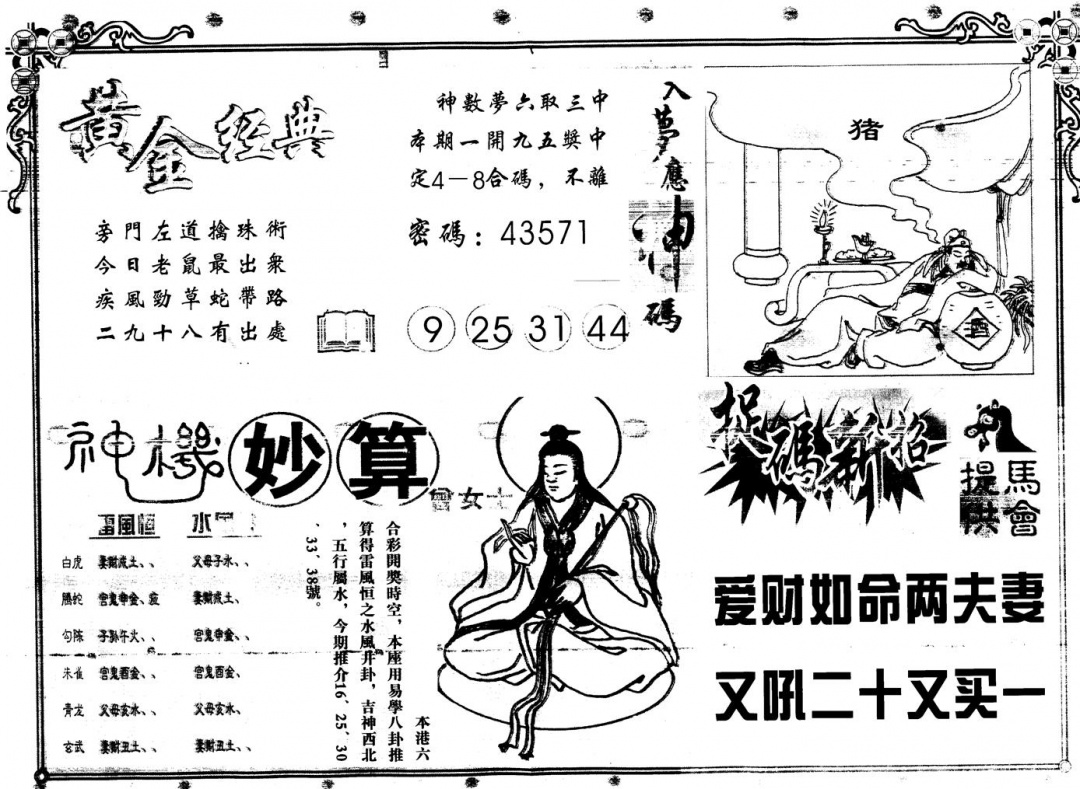 黃金經典
旁門左道擒珠術
今日老鼠最出衆
疾風勁草蛇帶路
二九十八有出處
神數夢六取三中
本期一開九五獎中
定4－8合碼，不離
密碼：43571
9 25 31 44
入夢應神碼
猪
酒
神機妙算
曾女士
雷風恒 水
白虎 妻財戌土、、 父母子水、、
騰蛇 官鬼申金、 妻財戌土、
勾陈 子孙午火、、 官鬼申金、、
朱雀 官鬼酉金、 官鬼酉金、
青龙 父母亥水、 父母亥水、
玄武 妻財丑土、、 妻財丑土、、
本港六
合彩開獎時空，本座用易學八卦推
算得雷風恒之水風井卦，吉神西北
，五行屬水，今期推介16、25、30
、33、38號。
捉碼新招
馬會
提供
爱财如命两夫妻
又吼二十又买一